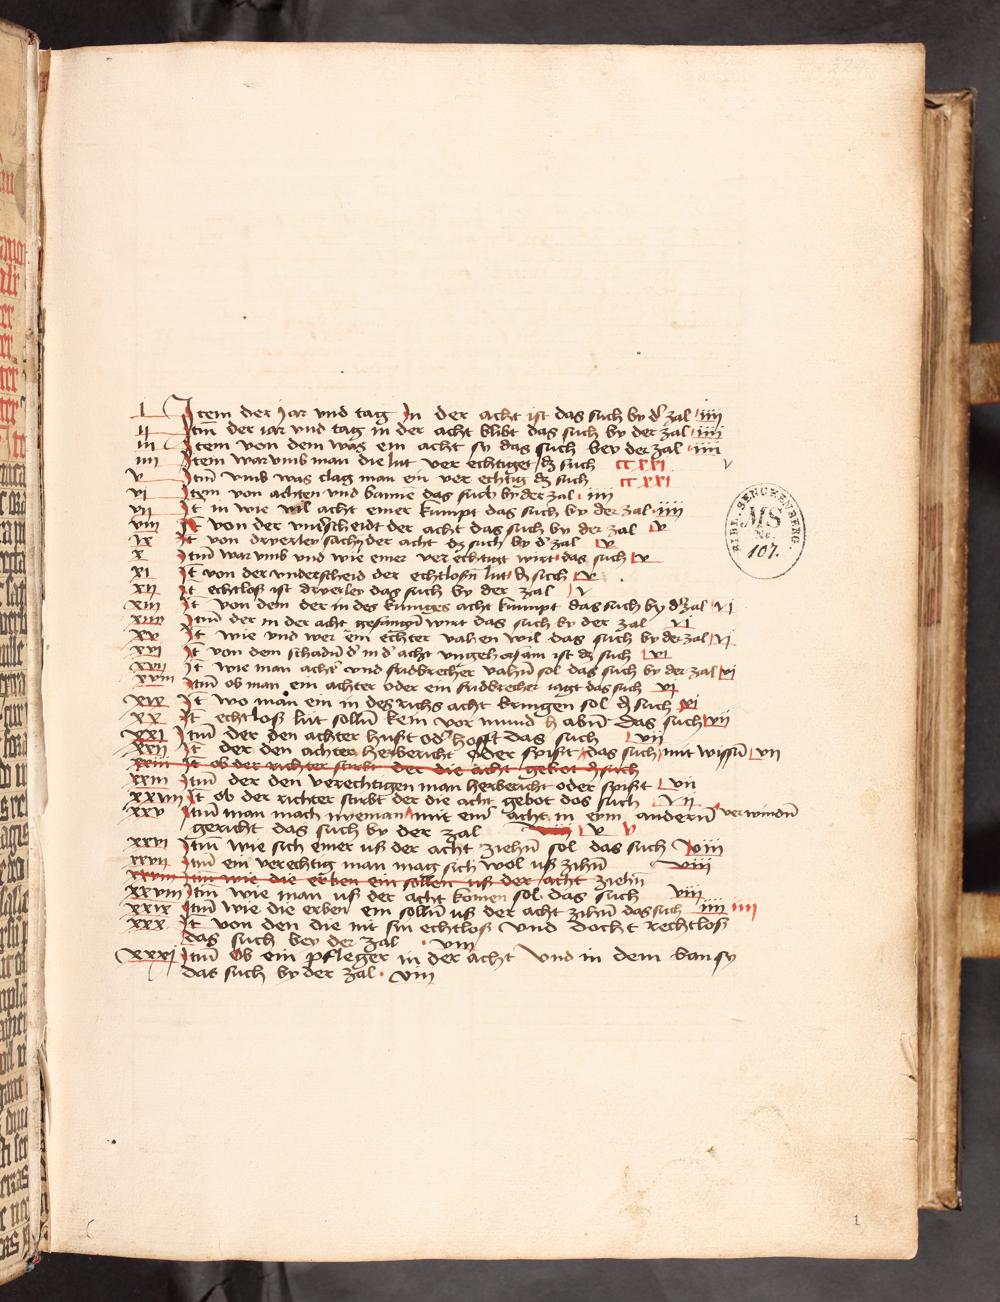 I Item der Jar vnd tag In der acht ist das such by dʼ zal iiii
II Itm̄ der iar vnd tag in der acht blibt das such by der zal iiii
III Item von dem was ein acht sy das such bey der zal iiii
IIII Item warumb man die lut ver echtiget dz such cc xxi
v Itm̄ vmb was clag man ein ver echtig dz such cc xxi
VI Item von achten vnd banne das such by der zal iiii
vii It in wie vil acht einer kumpt das such by der zal iiii
viii It von der vndscheidt der acht das such by der zal v
ix It von dryerley sach der acht dz such by dʼ zal v
x Itm̄ warumb vnd wie einer verechtigt wirt das such v
xi It von der vnderscheid der echtlosn̄ lut dz such v
xii It echtloß ist dryerley das such by der zal v
xiii It von dem der in des kuniges acht kumpt das such by dʼ zal vi
xiiii Itm̄ der in der acht gefangn̄ wirt das such by der zal vi
xv It wie vnd wer ein echter vahen wil das such by der zal vi
xvi It von dem schadn̄ dʼ in dʼ acht vngehorsam ist dz such vi
xvii It wie man achtʼ vnd fridbrecher vahn̄ sol das such by der zal vi
xviii Itm̄ ob man ein achter oder ein fridbrecher iagt das such vi
xix It wo man ein in des richs acht bringen sol dz such vi
xx It echtloß lüt solln̄ kein vormund h abn̄ das such vii
xxi Itm̄ der den achter hußt odʼ hofft das such vii
xxii It der den achter herbericht oder spißt das such mit wissn̄ vii
xxiii It ob der richter stirbt der die acht gebot dz such
xxiii Itm̄ der den verechtigen man herbericht oder spißt vii
xxiiii It ob der richter stirbt der die acht gebot das such vii
xxv Itm̄ man mach nyeman mit eimʼ acht in eym andern̄ verwindn̄
gericht das such by der zal viii v v
xxvi Itm̄ wie sich einer uß der acht ziehn̄ sol das such viii
xxvii Itm̄ ein verechtig man mag sich wol uß zihn̄ viii
xxviii Itm̄ wie die erben ein sollen uß der acht ziehn
xxviii Itm̄ wie man uß der acht komen sol das such viii
xxix Itm̄ wie die erben ein solln̄ uß der acht zihn̄ das such iiii iiii
xxx It von den die nit sin echtloß vnd docht rechtloß
das such bey der zal viii
xxxi Itm̄ Ob ein pfleger in der acht vnd in dem ban sy
das such by der zal viii
BIBL. SENCKENBERG.
MS
No.
107.
1